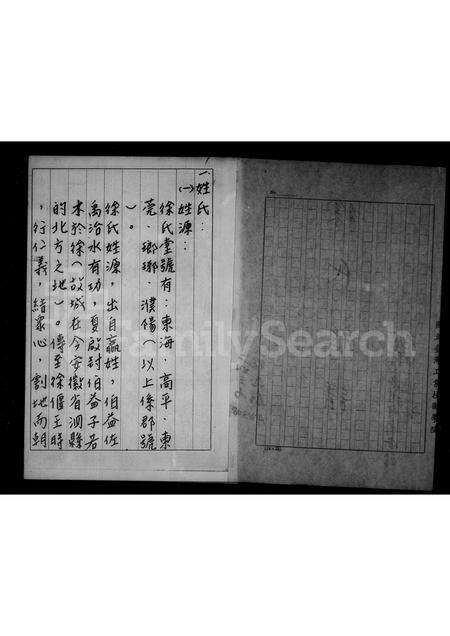 一、姓氏：
(一)姓源：
徐氏堂號有：東海．高平．東
莞．瑯琊．濮陽（以上係郡號
）。
徐氏姓源，出自嬴姓，伯益佐
禹治水有功，夏啟封伯益子若
木於徐（故城在今安徽省泗縣
的北方之地）。傳至徐偃王時
，行仁義，結眾心，割地而朝
FamilySearch